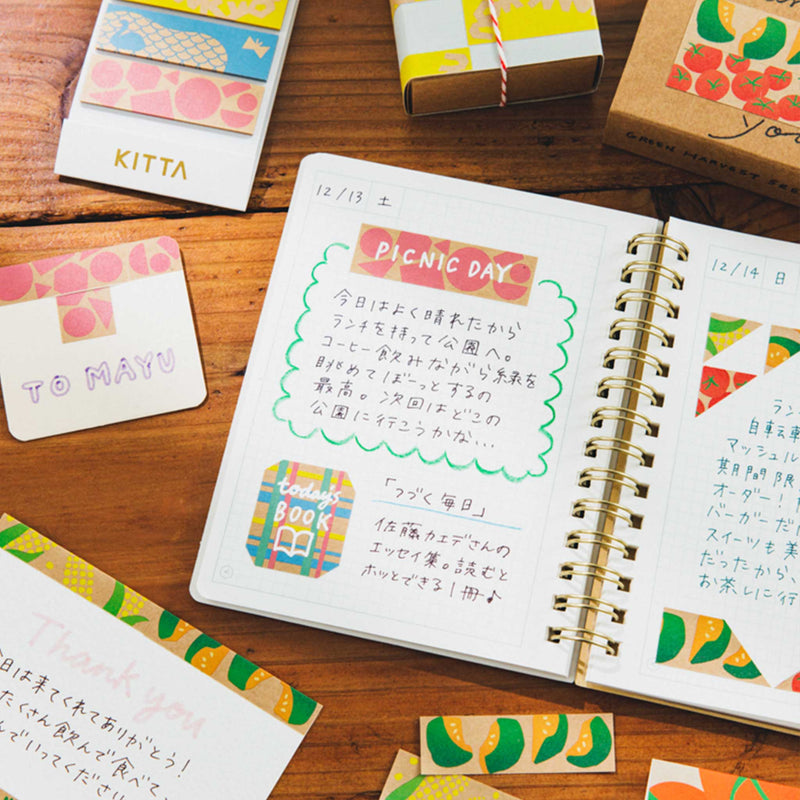 KITTA
you
GREEN HARVEST SEE
TO MAYU
12/13 土
PICNIC DAY
今日はよく晴れたから
ランチを持って公園へ。
コーヒー飲みながら緑を
眺めてぼーっとするの
最高。次回はどこの
公園に行こうかな...
today's
BOOK
「つづく毎日」
佐藤カエデさんの
エッセイ集。読むと
ホッとできる1冊♪
12/14 日
ラン
自転車
マッシュル
期間限
オーダー!
バーガーだ
スイーツも美
だったから、
お茶しに行
Thank you
今日は来てくれてありがとう!
たくさん飲んで食べて、
んでいってくださ